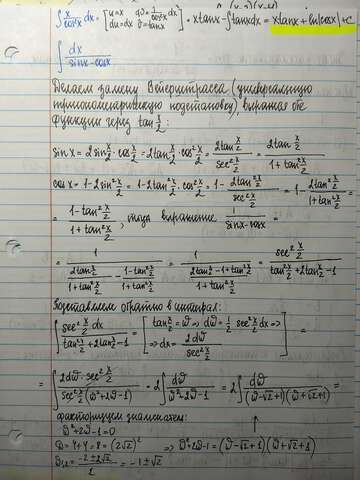 ∫ x/cos²x dx = [u=x dv=1/cos²x dx; du=dx v=tanx] = xtanx - ∫tanxdx = xtanx + ln|cosx| + C
∫ dx/(sinx - cosx)
Делаем замену Вейерштрасса (универсальную
тригонометрическую подстановку), выражая обе
функции через tan x/2:
sinx = 2sin x/2 · cos x/2 = 2tan x/2 · cos² x/2 = 2tan x/2 / sec² x/2 = 2tan x/2 / (1+tan² x/2)
cosx = 1-2sin² x/2 = 1-2tan² x/2 · cos² x/2 = 1 - 2tan² x/2 / sec² x/2 = 1 - 2tan² x/2 / (1+tan² x/2) =
= (1-tan² x/2) / (1+tan² x/2), тогда выражение 1/(sinx-cosx) =
= 1 / (2tan x/2 / (1+tan² x/2) - (1-tan² x/2) / (1+tan² x/2)) = 1 / ((2tan x/2 - 1 + tan² x/2) / (1+tan² x/2)) = sec² x/2 / (tan² x/2 + 2tan x/2 - 1)
Подставляем обратно в интеграл:
∫ sec² x/2 dx / (tan² x/2 + 2tan x/2 - 1) = [tan x/2 = ϑ ⇒ dϑ = 1/2 sec² x/2 dx ⇒ ⇒ dx = 2dϑ / sec² x/2] =
= ∫ 2dϑ · sec² x/2 / (sec² x/2 (ϑ²+2ϑ-1)) = 2∫ dϑ / (ϑ²+2ϑ-1) = 2∫ dϑ / ((ϑ-√2+1)(ϑ+√2+1)) =
факторизуем знаменатель: ↑
ϑ²+2ϑ-1=0
D = 4+4 = 8 = (2√2)² ⇒ ϑ²+2ϑ-1 = (ϑ-√2+1)(ϑ+√2+1)
ϑ₁,₂ = (-2±2√2)/2 = -1±√2